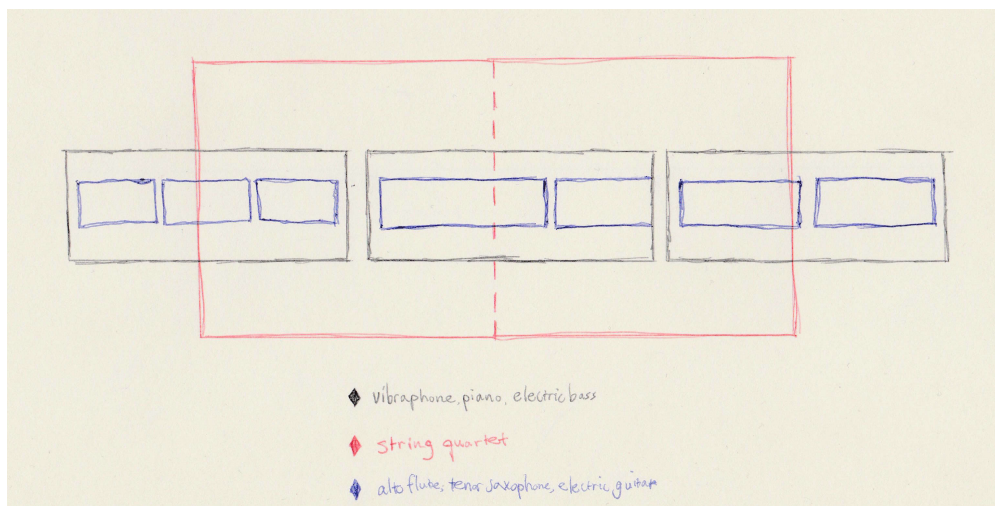 vibraphone, piano, electric bass
string quartet
alto flute, tenor saxophone, electric guitar